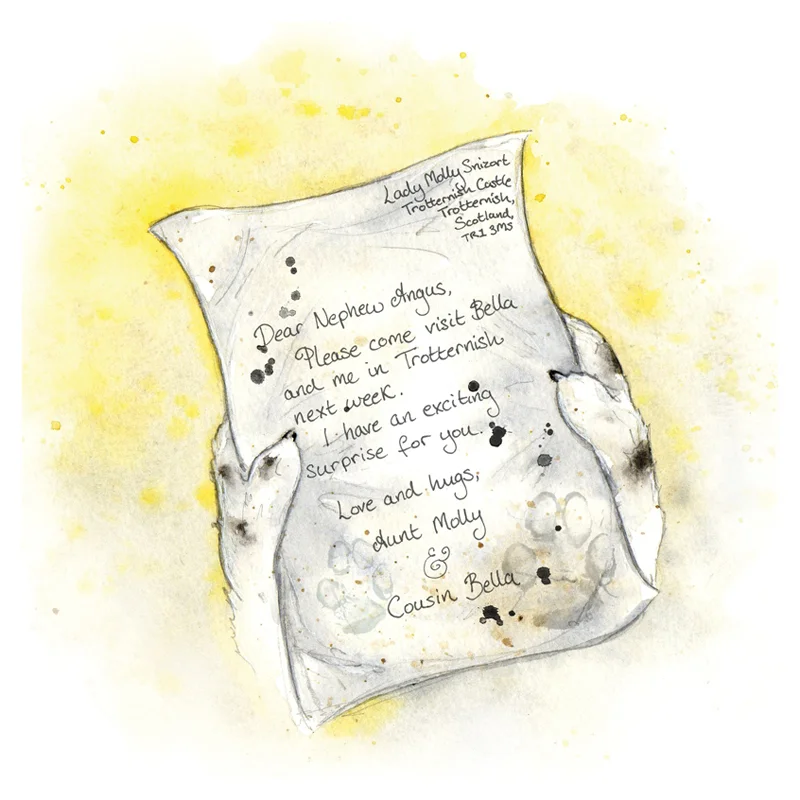 Lady Molly Snizort
Trotternish Castle
Trotternish,
Scotland,
TR1 3MS
Dear Nephew Angus,
Please come visit Bella
and me in Trotternish
next week.
I have an exciting
surprise for you.
Love and hugs,
Aunt Molly
&
Cousin Bella